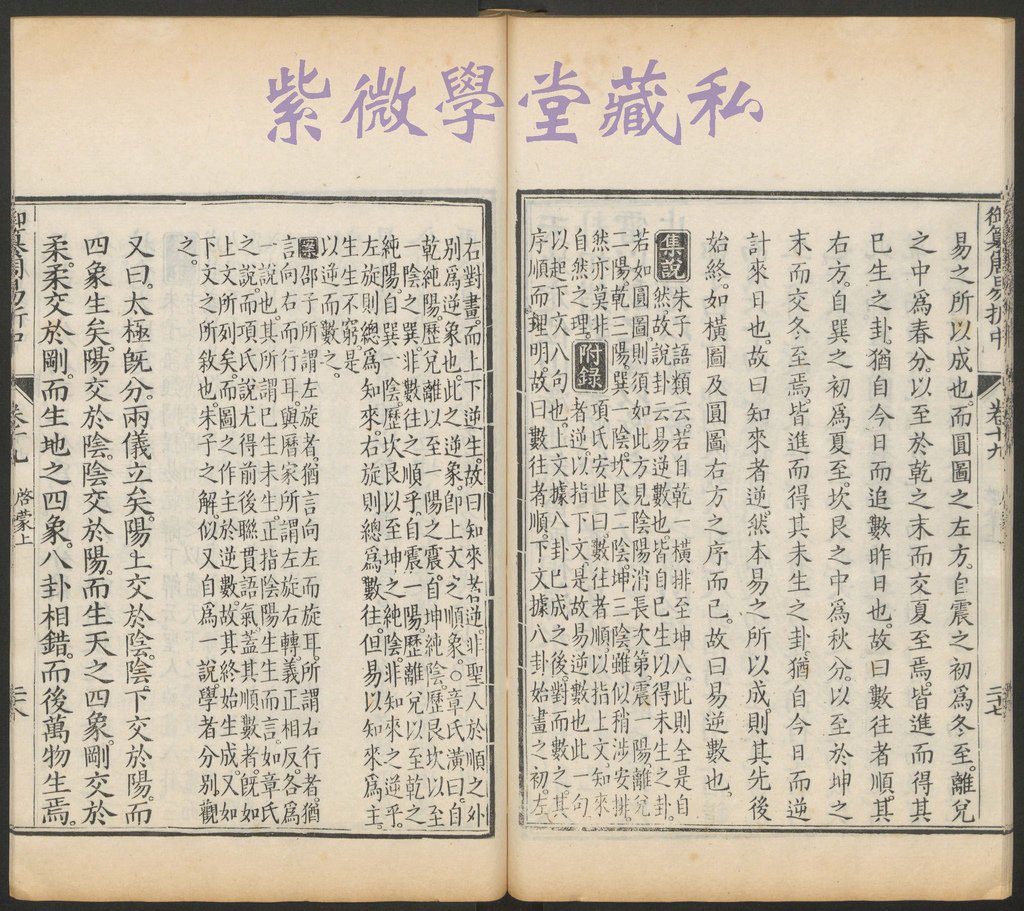 紫微學堂藏私
御纂周易折中 卷十九
易之所以成也。而圓圖之左方。自震之初爲冬至。離兌
之中爲春分。以至於乾之末而交夏至焉。皆進而得其
已生之卦。猶自今日而追數昨日也。故曰數往者順。其
右方。自巽之初爲夏至。坎艮之中爲秋分。以至於坤之
末而交冬至焉。皆進而得其未生之卦。猶自今日而逆
計來日也。故曰知來者逆。然本易之所以成。則其先後
始終。如橫圖及圓圖右方之序而已。故曰易逆數也。
集說 朱子語類云。若自乾一橫排至坤八。此則全是自
然故說卦云易逆數也。皆自已生以得未生之卦。
若如圓圖則須如此方見陰陽消長次第。震一陽。離兌
二陽。乾三陽。巽一陰。坎艮二陰。坤三陰。雖似稍涉安排。
然亦莫非
自然之理。
附錄 項氏安世曰。數往者順。以指上文。知來
者逆。以指下文。是故易逆數也。此一句
以起下文八句也。上文據八卦已成之後。對而數之。其
序順而理明。故曰數往者順。下文據八卦始畫之初。左
右對畫。而上下逆生。故曰知來者逆。非聖人於順之外
別爲逆象也。此之逆象。卽上文之順象。○章氏潢曰。自
乾純陽。歷兌離以至一陽之震。自坤純陰。歷艮坎以至
一陰之巽。非數往之順乎。自震一陽。歷離兌以至乾之
純陽。自巽一陰。歷坎艮以至坤之純陰。非知來之逆乎。
左旋則總爲知來。右旋則總爲數往。但易以知來爲主。
生生不窮。是
以逆而數之。
案 邵子所謂左旋者。猶言向左而旋耳。所謂右行者。猶
言向右而行耳。與曆家所謂左旋右轉。義正相反。各爲
一說也。其所謂已生未生。正指陰陽生生而言。如章氏
之說。而項氏說尤得前後聯貫語氣。蓋其順數者。旣如
上文所列矣。而圖之作主於逆數。故其終始生成。又如
下文之所敘也。朱子之解。似又自爲一說。學者分別觀
之。
又曰。太極旣分。兩儀立矣。陽上交於陰。陰下交於陽。而
四象生矣。陽交於陰。陰交於陽。而生天之四象。剛交於
柔。柔交於剛。而生地之四象。八卦相錯。而後萬物生焉。
御纂周易折中 卷十九 啓蒙上